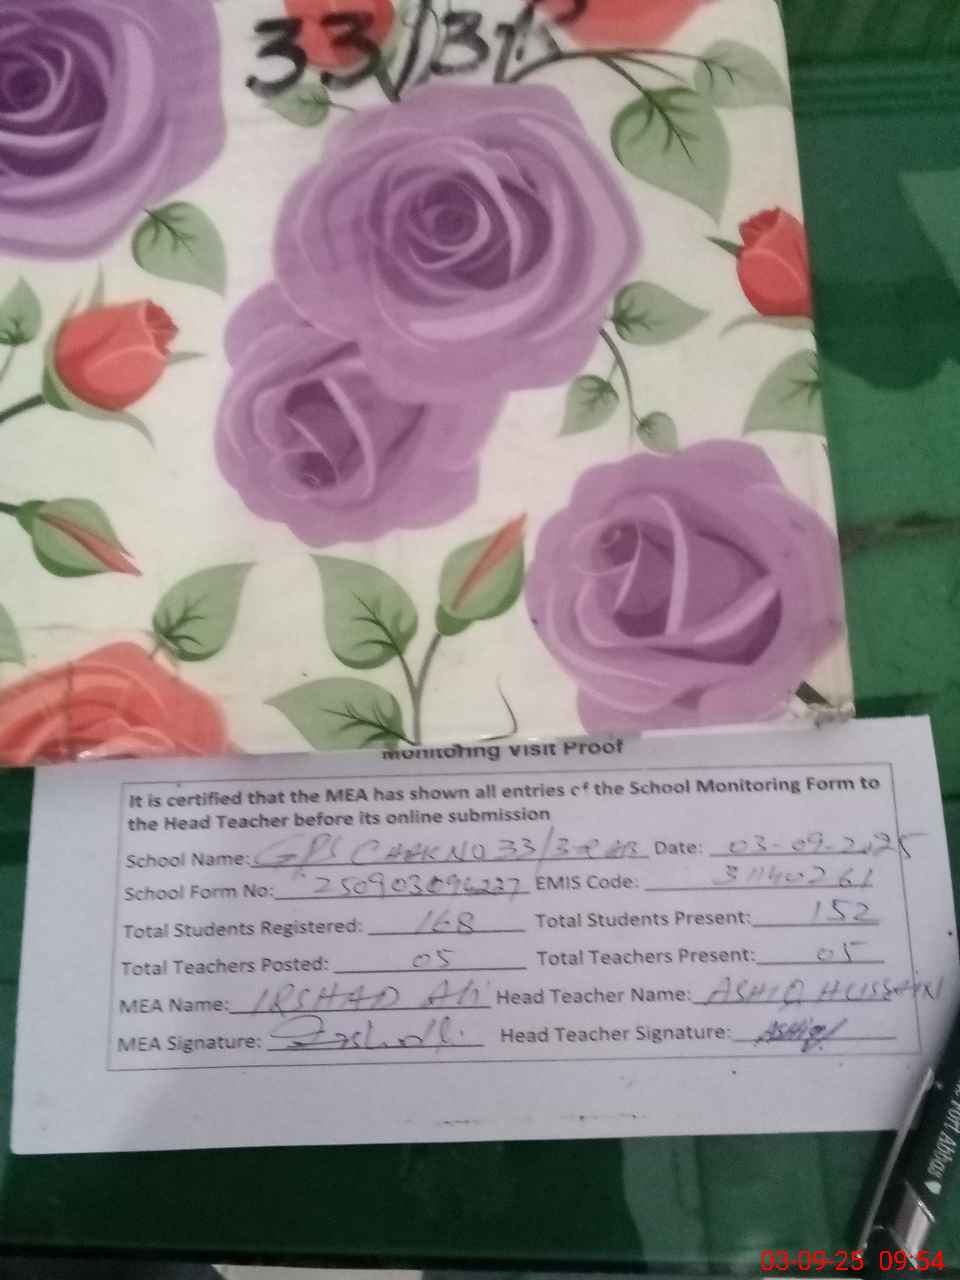 33/3R
Monitoring Visit Proof
It is certified that the MEA has shown all entries of the School Monitoring Form to
the Head Teacher before its online submission
School Name: GPS CHAK NO 33/3R HB Date: 03-09-2025
School Form No: EMIS Code: 31140261
Total Students Registered: 168 Total Students Present: 152
Total Teachers Posted: 05 Total Teachers Present: 05
MEA Name: IRSHAD Ali Head Teacher Name: ASHIQ HUSSAIN
MEA Signature: Head Teacher Signature: Ashiq
Fort Abbas
03-09-25 09:54